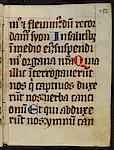 m⁹ ⁊ fleuim⁹ dū recor
damur syon In salicib⁹
ī medio ei⁹ suspendi
m⁹ organa nr̄a Quia
illic īterrogauerūt
nos q captiuos duxe
rūt nos uerba canci
onū Et qui abduxe
rūt nos ymnū can